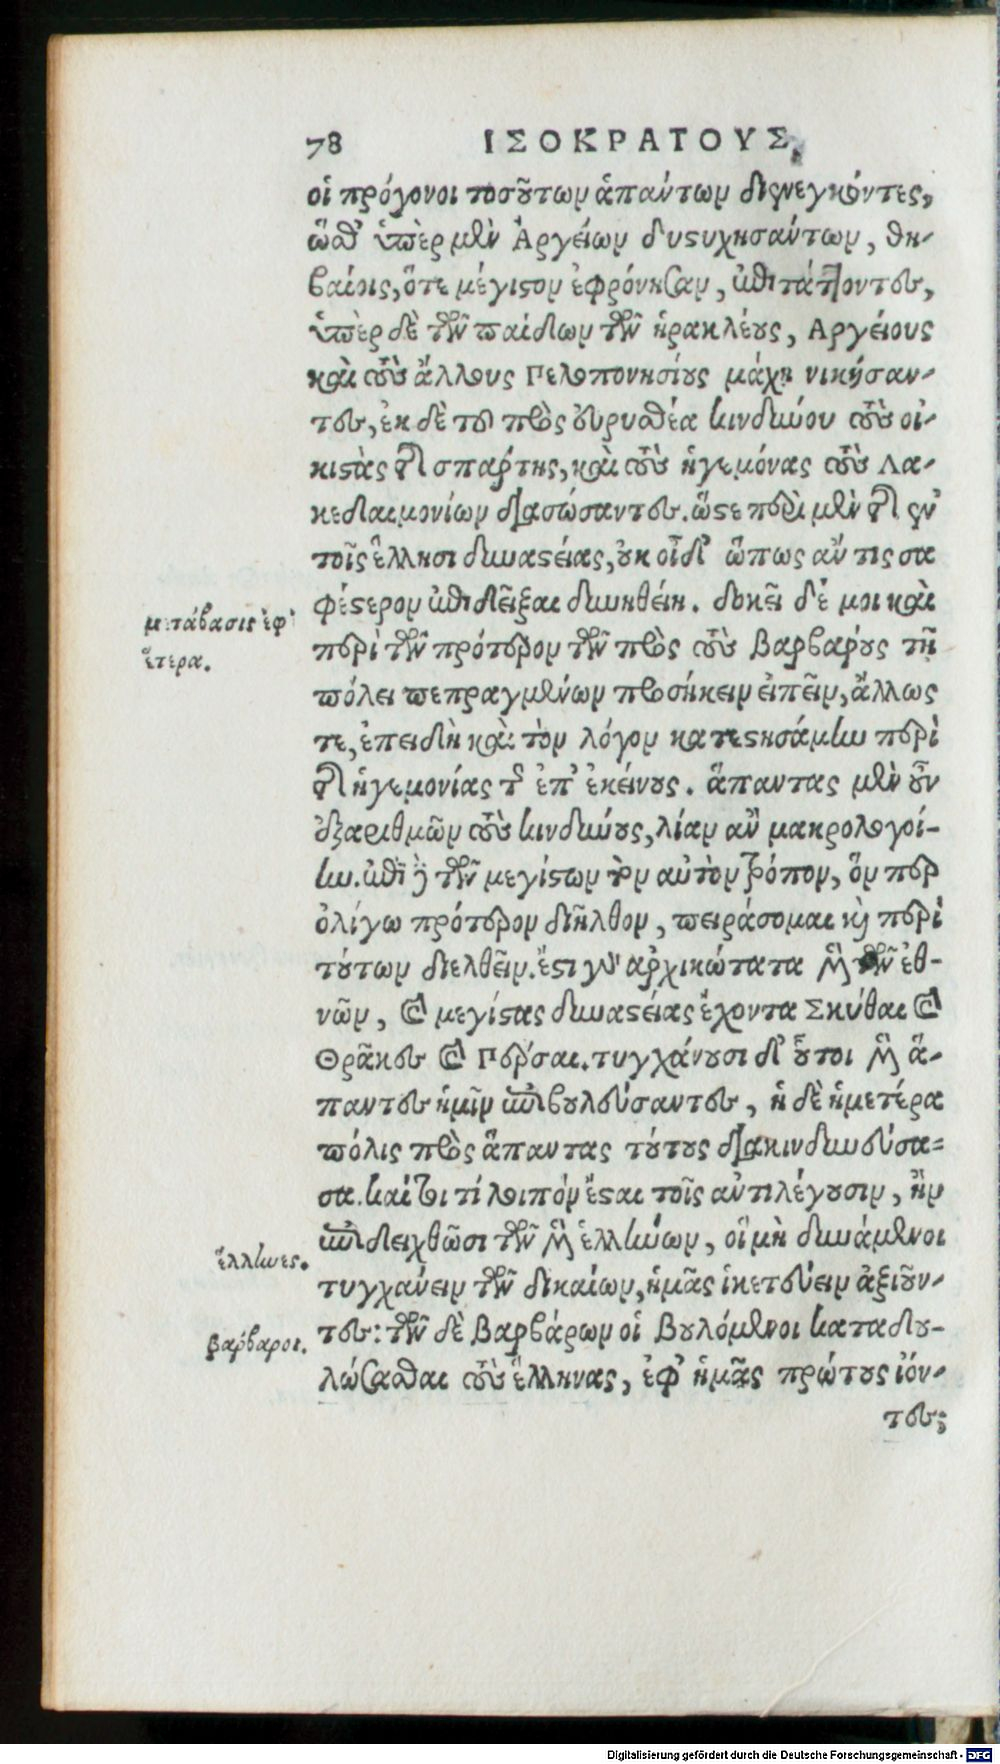 78 ΙΣΟΚΡΑΤΟΥΣ,
οἱ πρόγονοι τοσοῦτον ἁπάντων διενεγκόντες,
ὥσθ' ὑπὲρ μὲν Ἀργείων δυστυχησάντων, Θη-
βαίοις, ὅτε μέγιστον ἐφρόνησαν, ἐπιτάττοντες,
ὑπὲρ δὲ τῶν παίδων τῶν ἡρακλέους, Ἀργείους
καὶ τοὺς ἄλλους Πελοπονησίους μάχῃ νικήσαν-
τες, ἐκ δὲ τοῦ πρὸς εὐρυσθέα κινδύνου τοὺς οἰ-
κιστὰς τῆς σπάρτης, καὶ τοὺς ἡγεμόνας τοὺς Λα-
κεδαιμονίων διασώσαντες. ὥστε περὶ μὲν τῆς ἐν
τοῖς ἕλλησι δυναστείας, οὐκ οἶδ' ὅπως ἄν τις σα
φέστερον ἐπιδεῖξαι δυνηθείη. δοκεῖ δέ μοι καὶ
περὶ τῶν πρότερον τῶν πρὸς τοὺς βαρβάρους τῇ
πόλει πεπραγμένων προσήκειν εἰπεῖν, ἄλλως
τε, ἐπειδὴ καὶ τὸν λόγον κατεστησάμην περὶ
τῆς ἡγεμονίας τῆς ἐπ' ἐκείνους. ἅπαντας μὲν οὖν
ἐξαριθμῶν τοὺς κινδύνους, λίαν ἂν μακρολογοί-
ην. ἐπὶ δὲ τῶν μεγίστων τὸν αὐτὸν τρόπον, ὅν περ
ὀλίγω πρότερον διῆλθον, πειράσομαι καὶ περὶ
τούτων διελθεῖν. ἔστι γὰρ ἀρχικώτατα μὲν τῶν ἐθ-
νῶν, καὶ μεγίστας δυναστείας ἔχοντα Σκύθαι καὶ
Θρᾷκες καὶ Πέρσαι. τυγχάνουσι δ' οὗτοι μὲν ἅ-
παντες ἡμῖν ἐπιβουλεύσαντες, ἡ δὲ ἡμετέρα
πόλις πρὸς ἅπαντας τούτους διακινδυνεύσα-
σα. καί τοι τί λοιπὸν ἔσται τοῖς ἀντιλέγουσιν, ἢν
ἐπιδειχθῶσι τῶν μὲν ἑλλήνων, οἱ μὴ δυνάμενοι
τυγχάνειν τῶν δικαίων, ἡμᾶς ἱκετεύειν ἀξιοῦν-
τες: τῶν δὲ βαρβάρων οἱ βουλόμενοι καταδου-
λώσασθαι τοὺς ἕλληνας, ἐφ' ἡμᾶς πρώτους ἰόν-
τες;
μετάβασις ἐφ'
ἕτερα.
ἕλληνες.
βάρβαροι.
Digitalisierung gefördert durch die Deutsche Forschungsgemeinschaft - DFG